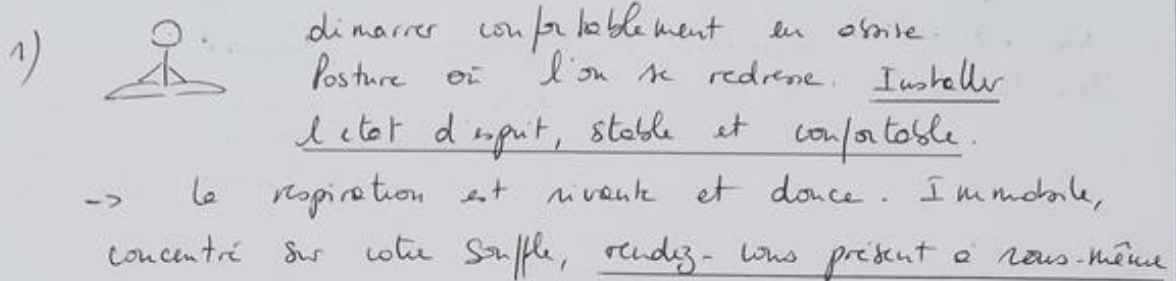 1) démarrer confortablement en assise.
Posture où l'on se redresse. Installer
l'état d'esprit, stable et confortable.
-> la respiration est vivante et douce. Immobile,
concentré sur votre souffle, rendez-vous présent à vous-même